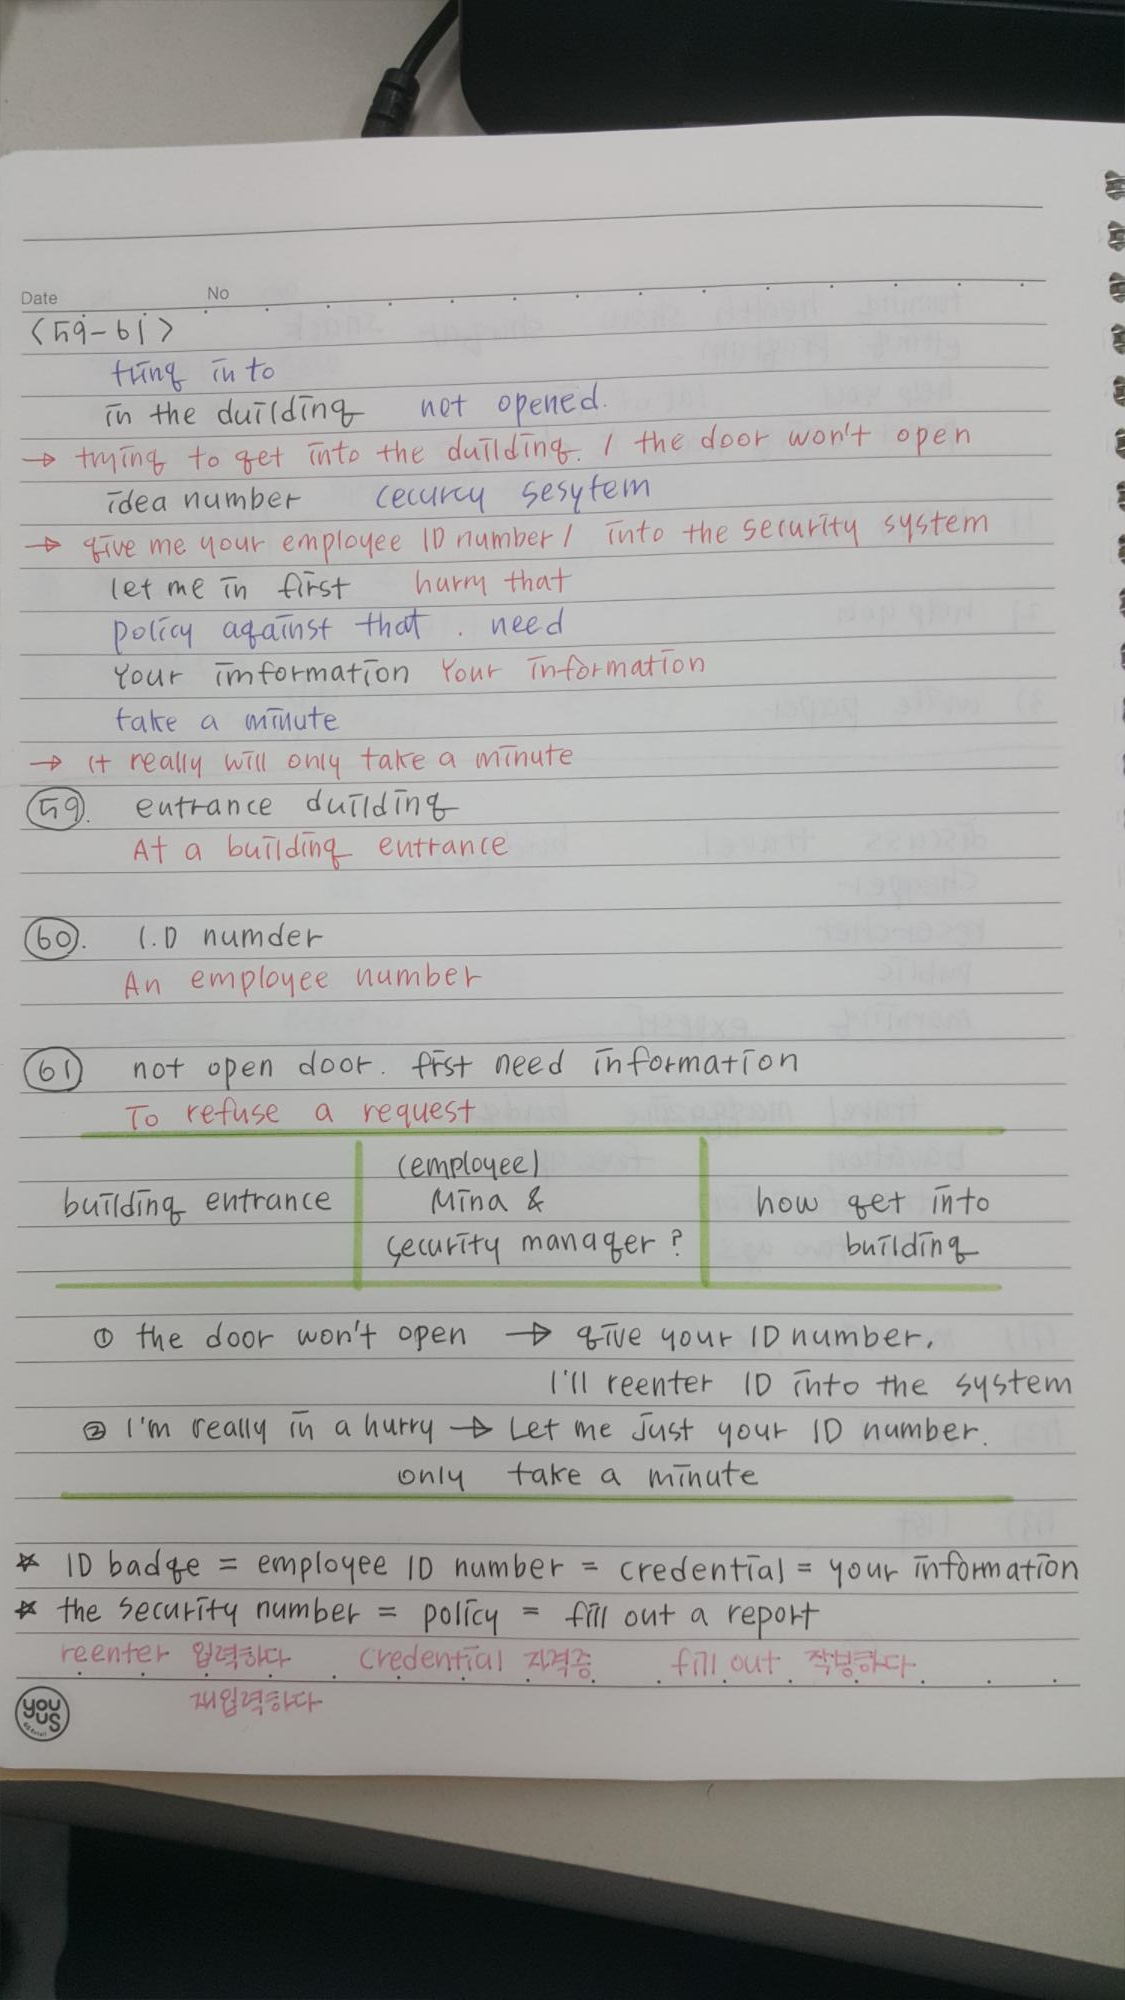 Date No
<59-61>
tring into
in the duilding not opened.
→ trying to get into the duilding. / the door won't open
idea number cecurcy sesytem
→ give me your employee ID number / into the security system
let me in first hurry that
policy against that. need
Your imformation Your information
take a minute
→ It really will only take a minute
59. entrance duilding
At a building entrance
60. I.D numder
An employee number
61 not open door. first need information
To refuse a request
(employee)
building entrance Mina & how get into
security manager? building
① the door won't open → give your ID number.
I'll reenter ID into the system
② I'm really in a hurry → Let me just your ID number.
only take a minute
* ID badge = employee ID number = credential = your information
* the security number = policy = fill out a report
reenter 입력하다 credential 자격증 fill out 작성하다
재입력하다
YOU US